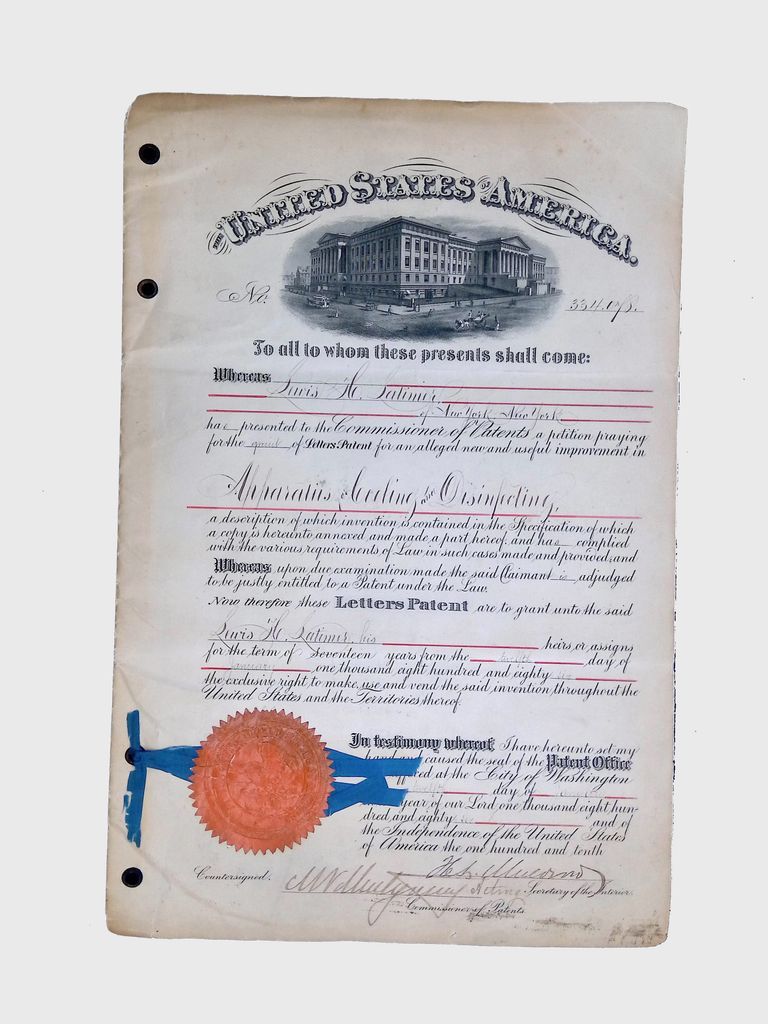 THE UNITED STATES OF AMERICA.
No. 334,078.
To all to whom these presents shall come:
Whereas Lewis H. Latimer,
of New York, New York
has presented to the Commissioner of Patents a petition praying
for the grant of Letters Patent for an alleged new and useful improvement in
Apparatus Cooling and Disinfecting,
a description of which invention is contained in the Specification of which
a copy is hereunto annexed and made a part hereof, and has complied
with the various requirements of Law in such cases made and provided, and
Whereas upon due examination made the said Claimant is adjudged
to be justly entitled to a Patent under the Law.
Now therefore these Letters Patent are to grant unto the said
Lewis H. Latimer, his heirs or assigns
for the term of Seventeen years from the twelfth day of
January one thousand eight hundred and eighty six
the exclusive right to make, use and vend the said invention throughout the
United States and the Territories thereof.
In testimony whereof I have hereunto set my
hand and caused the seal of the Patent Office
at the City of Washington
day of
year of our Lord one thousand eight hun-
dred and eighty six and of
the Independence of the United States
of America the one hundred and tenth
Countersigned:
Acting Secretary of the Interior.
Commissioner of Patents